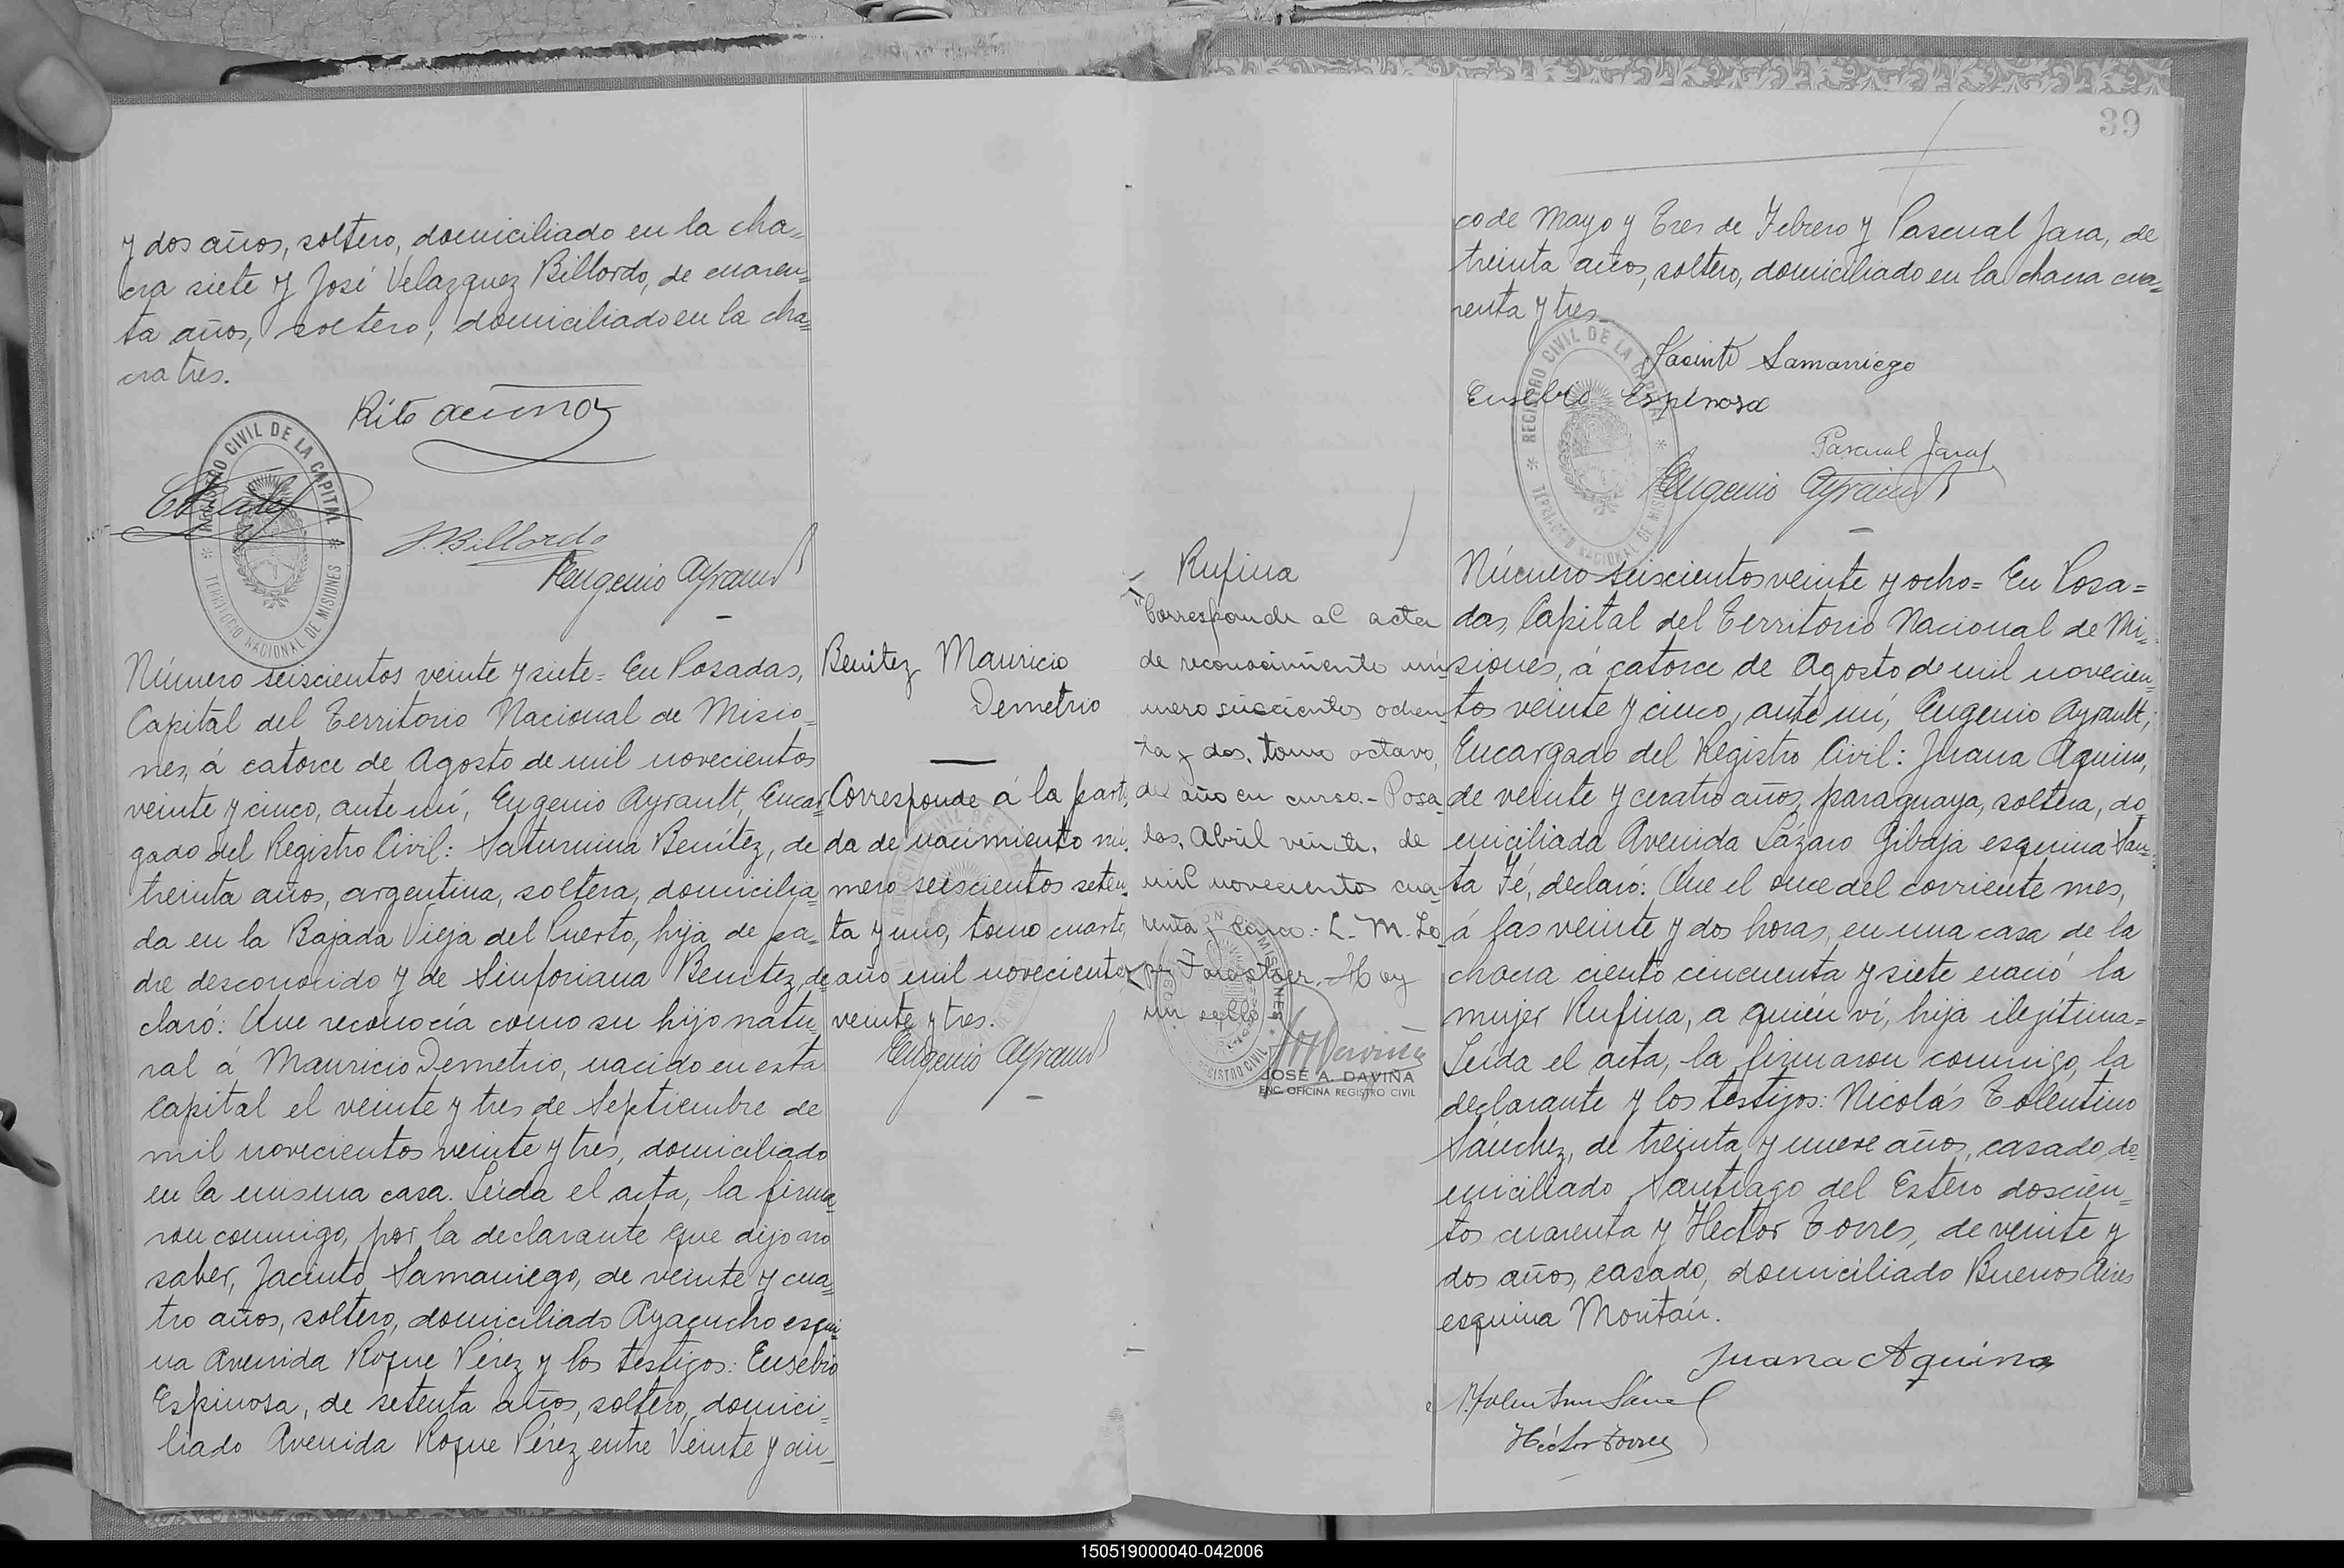 y dos años, soltero, domiciliado en la cha=
cra siete y José Velazquez Billordo, de cuaren=
ta años, soltero, domiciliado en la cha=
cra tres.
Rito Acuña
REGISTRO CIVIL DE LA CAPITAL
TERRITORIO NACIONAL DE MISIONES
J. Billordo
Eugenio Ayrault
Número seiscientos veinte y siete = En Posadas,
Capital del Territorio Nacional de Misio=
nes, á catorce de Agosto de mil novecientos
veinte y cinco, ante mí, Eugenio Ayrault, Encar
gado del Registro Civil: Saturnina Benítez, de
treinta años, argentina, soltera, domicilia
da en la Bajada Vieja del Puerto, hija de pa=
dre desconocido y de Sinforiana Benítez, de
claró: Que reconocía como su hijo natu=
ral á Mauricio Demetrio, nacido en esta
Capital el veinte y tres de Septiembre de
mil novecientos veinte y tres, domiciliado
en la misma casa. Leída el acta, la firma=
ron conmigo, por la declarante que dijo no
saber, Jacinto Samaniego, de veinte y cua=
tro años, soltero, domiciliado Ayacucho esqui=
na Avenida Roque Pérez y los testigos: Eusebio
Espinosa, de setenta años, soltero, domici=
liado Avenida Roque Pérez entre Veinte y cin=
Benítez Mauricio
Demetrio
Corresponde á la parti=
da de nacimiento nú=
mero seiscientos seten=
ta y uno, tomo cuarto,
año mil novecientos
veinte y tres.
Eugenio Ayrault
39
co de Mayo y Tres de Febrero y Pascual Jara, de
treinta años, soltero, domiciliado en la chacra cua=
renta y tres.
REGISTRO CIVIL DE LA CAPITAL
TERRITORIO NACIONAL DE MISIONES
Jacinto Samaniego
Eusebio Espinosa
Pascual Jara
Eugenio Ayrault
Rufina
"Corresponde al acta
de reconocimiento nú=
mero seiscientos ochen=
ta y dos, tomo octavo,
del año en curso.- Posa=
das, Abril veinte, de
mil novecientos cua=
renta y cinco.- L. M. Lo=
Hay
un sello
JOSE A. DAVIÑA
ENC. OFICINA REGISTRO CIVIL
Número seiscientos veinte y ocho = En Posa=
das, Capital del Territorio Nacional de Mi=
siones, á catorce de Agosto de mil novecien=
tos veinte y cinco, ante mí, Eugenio Ayrault,
Encargado del Registro Civil: Juana Aquino,
de veinte y cuatro años, paraguaya, soltera, do
miciliada Avenida Lázaro Gibaja esquina San=
ta Fé, declaró: Que el once del corriente mes,
á las veinte y dos horas, en una casa de la
chacra ciento cincuenta y siete nació la
mujer Rufina, a quién ví, hija ilegítima=
Leída el acta, la firmaron conmigo, la
declarante y los testigos: Nicolás Tolentino
Sánchez, de treinta y nueve años, casado, do=
miciliado Santiago del Estero doscien=
tos cuarenta y Hector Torres, de veinte y
dos años, casado, domiciliado Buenos Aires
esquina Moritán.
Juana Aquino
Héctor Torres
150519000040-042006